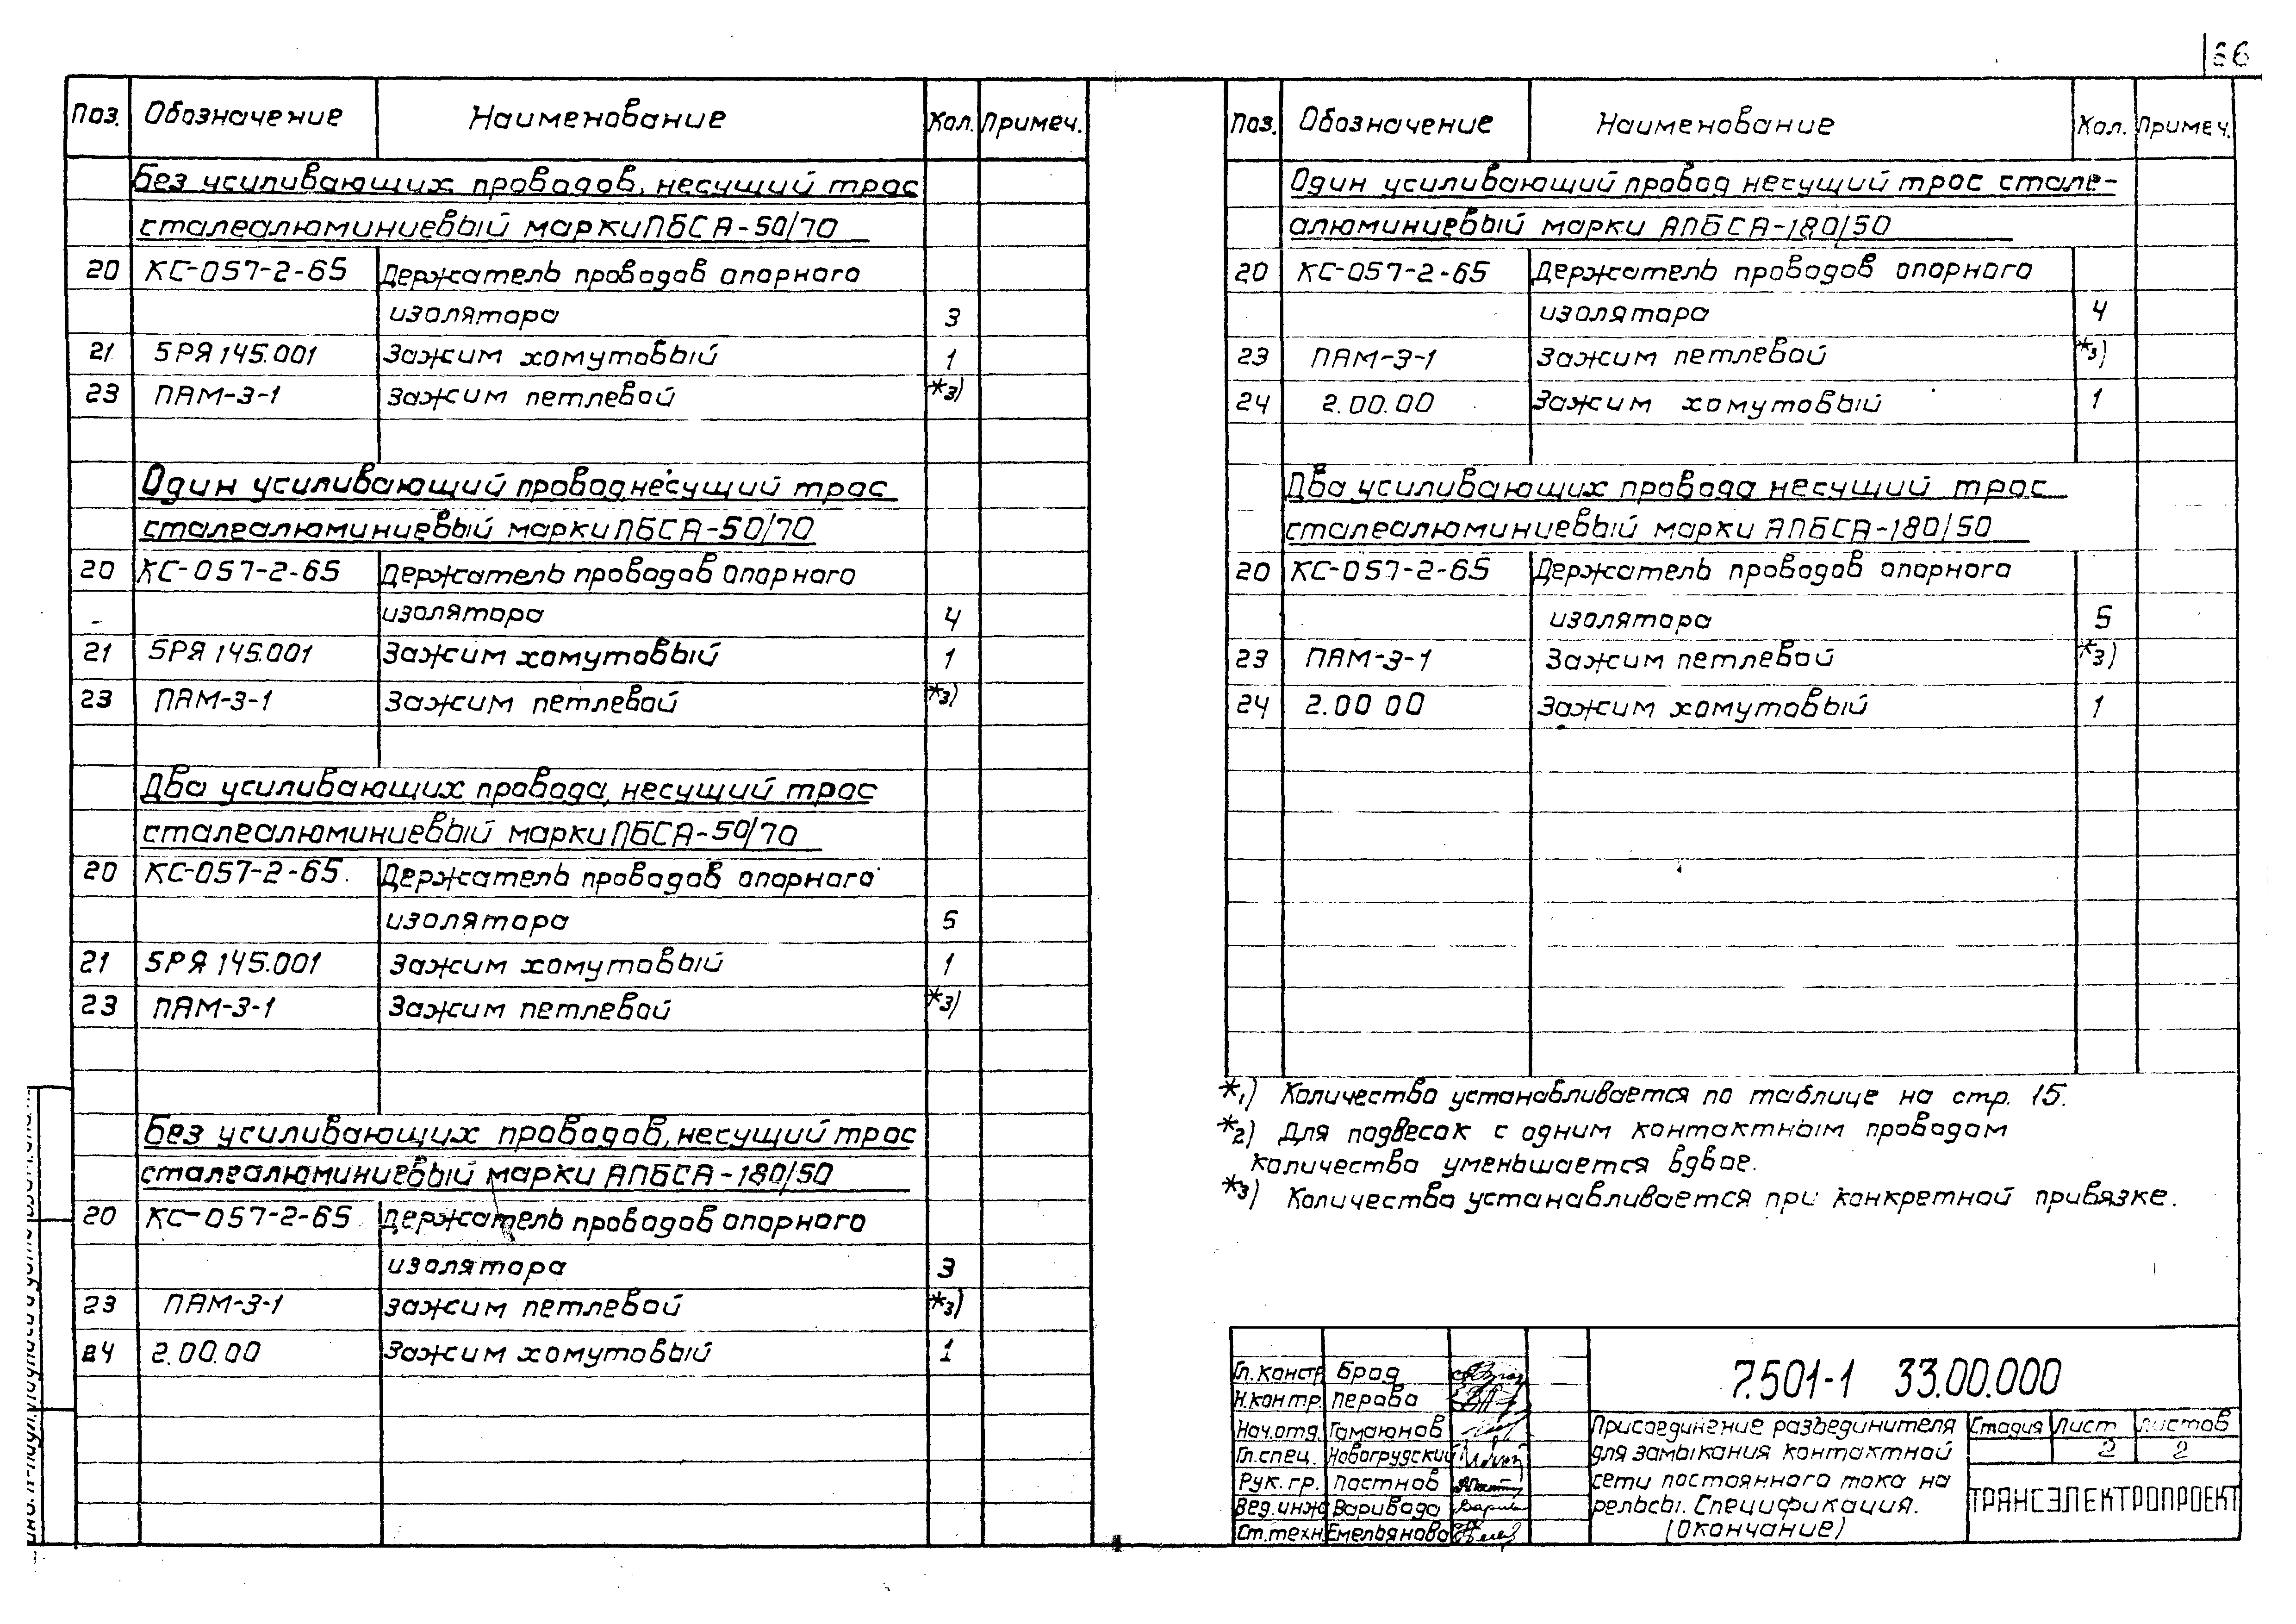 66
Поз. Обозначение Наименование Кол. Примеч.
Без усиливающих проводов, несущий трос
сталеалюминиевый марки ПБСА-50/70
20 КС-057-2-65 Держатель проводов опорного
изолятора 3
21 5РЯ 145.001 Зажим хомутовый 1
23 ПАМ-3-1 Зажим петлевой *3)
Один усиливающий провод несущий трос
сталеалюминиевый марки ПБСА-50/70
20 КС-057-2-65 Держатель проводов опорного
изолятора 4
21 5РЯ 145.001 Зажим хомутовый 1
23 ПАМ-3-1 Зажим петлевой *3)
Два усиливающих провода, несущий трос
сталеалюминиевый марки ПБСА-50/70
20 КС-057-2-65. Держатель проводов опорного
изолятора 5
21 5РЯ 145.001 Зажим хомутовый 1
23 ПАМ-3-1 Зажим петлевой *3)
Без усиливающих проводов, несущий трос
сталеалюминиевый марки АПБСА-180/50
20 КС-057-2-65 Держатель проводов опорного
изолятора 3
23 ПАМ-3-1 Зажим петлевой *3)
24 2.00.00 Зажим хомутовый 1
Поз. Обозначение Наименование Кол. Примеч.
Один усиливающий провод несущий трос стале-
алюминиевый марки АПБСА-180/50
20 КС-057-2-65 Держатель проводов опорного
изолятора 4
23 ПАМ-3-1 Зажим петлевой *3)
24 2.00.00 Зажим хомутовый 1
Два усиливающих провода несущий трос
сталеалюминиевый марки АПБСА-180/50
20 КС-057-2-65 Держатель проводов опорного
изолятора 5
23 ПАМ-3-1 Зажим петлевой *3)
24 2.00 00 Зажим хомутовый 1
*1) Количество устанавливается по таблице на стр. 15.
*2) Для подвесок с одним контактным проводом
количество уменьшается вдвое.
*3) Количество устанавливается при конкретной привязке.
Гл. констр. Брод
Н.контр. Перова
Нач.отд. Гамаюнов
Гл.спец. Новогрудский
Рук. гр. Постнов
Вед.инж Варивода
Ст.техн Емельянова
7.501-1 33.00.000
Присоединение разъединителя
для замыкания контактной
сети постоянного тока на
рельсы. Спецификация.
(Окончание)
Стадия Лист Листов
2 2
ТРАНСЭЛЕКТРОПРОЕКТ